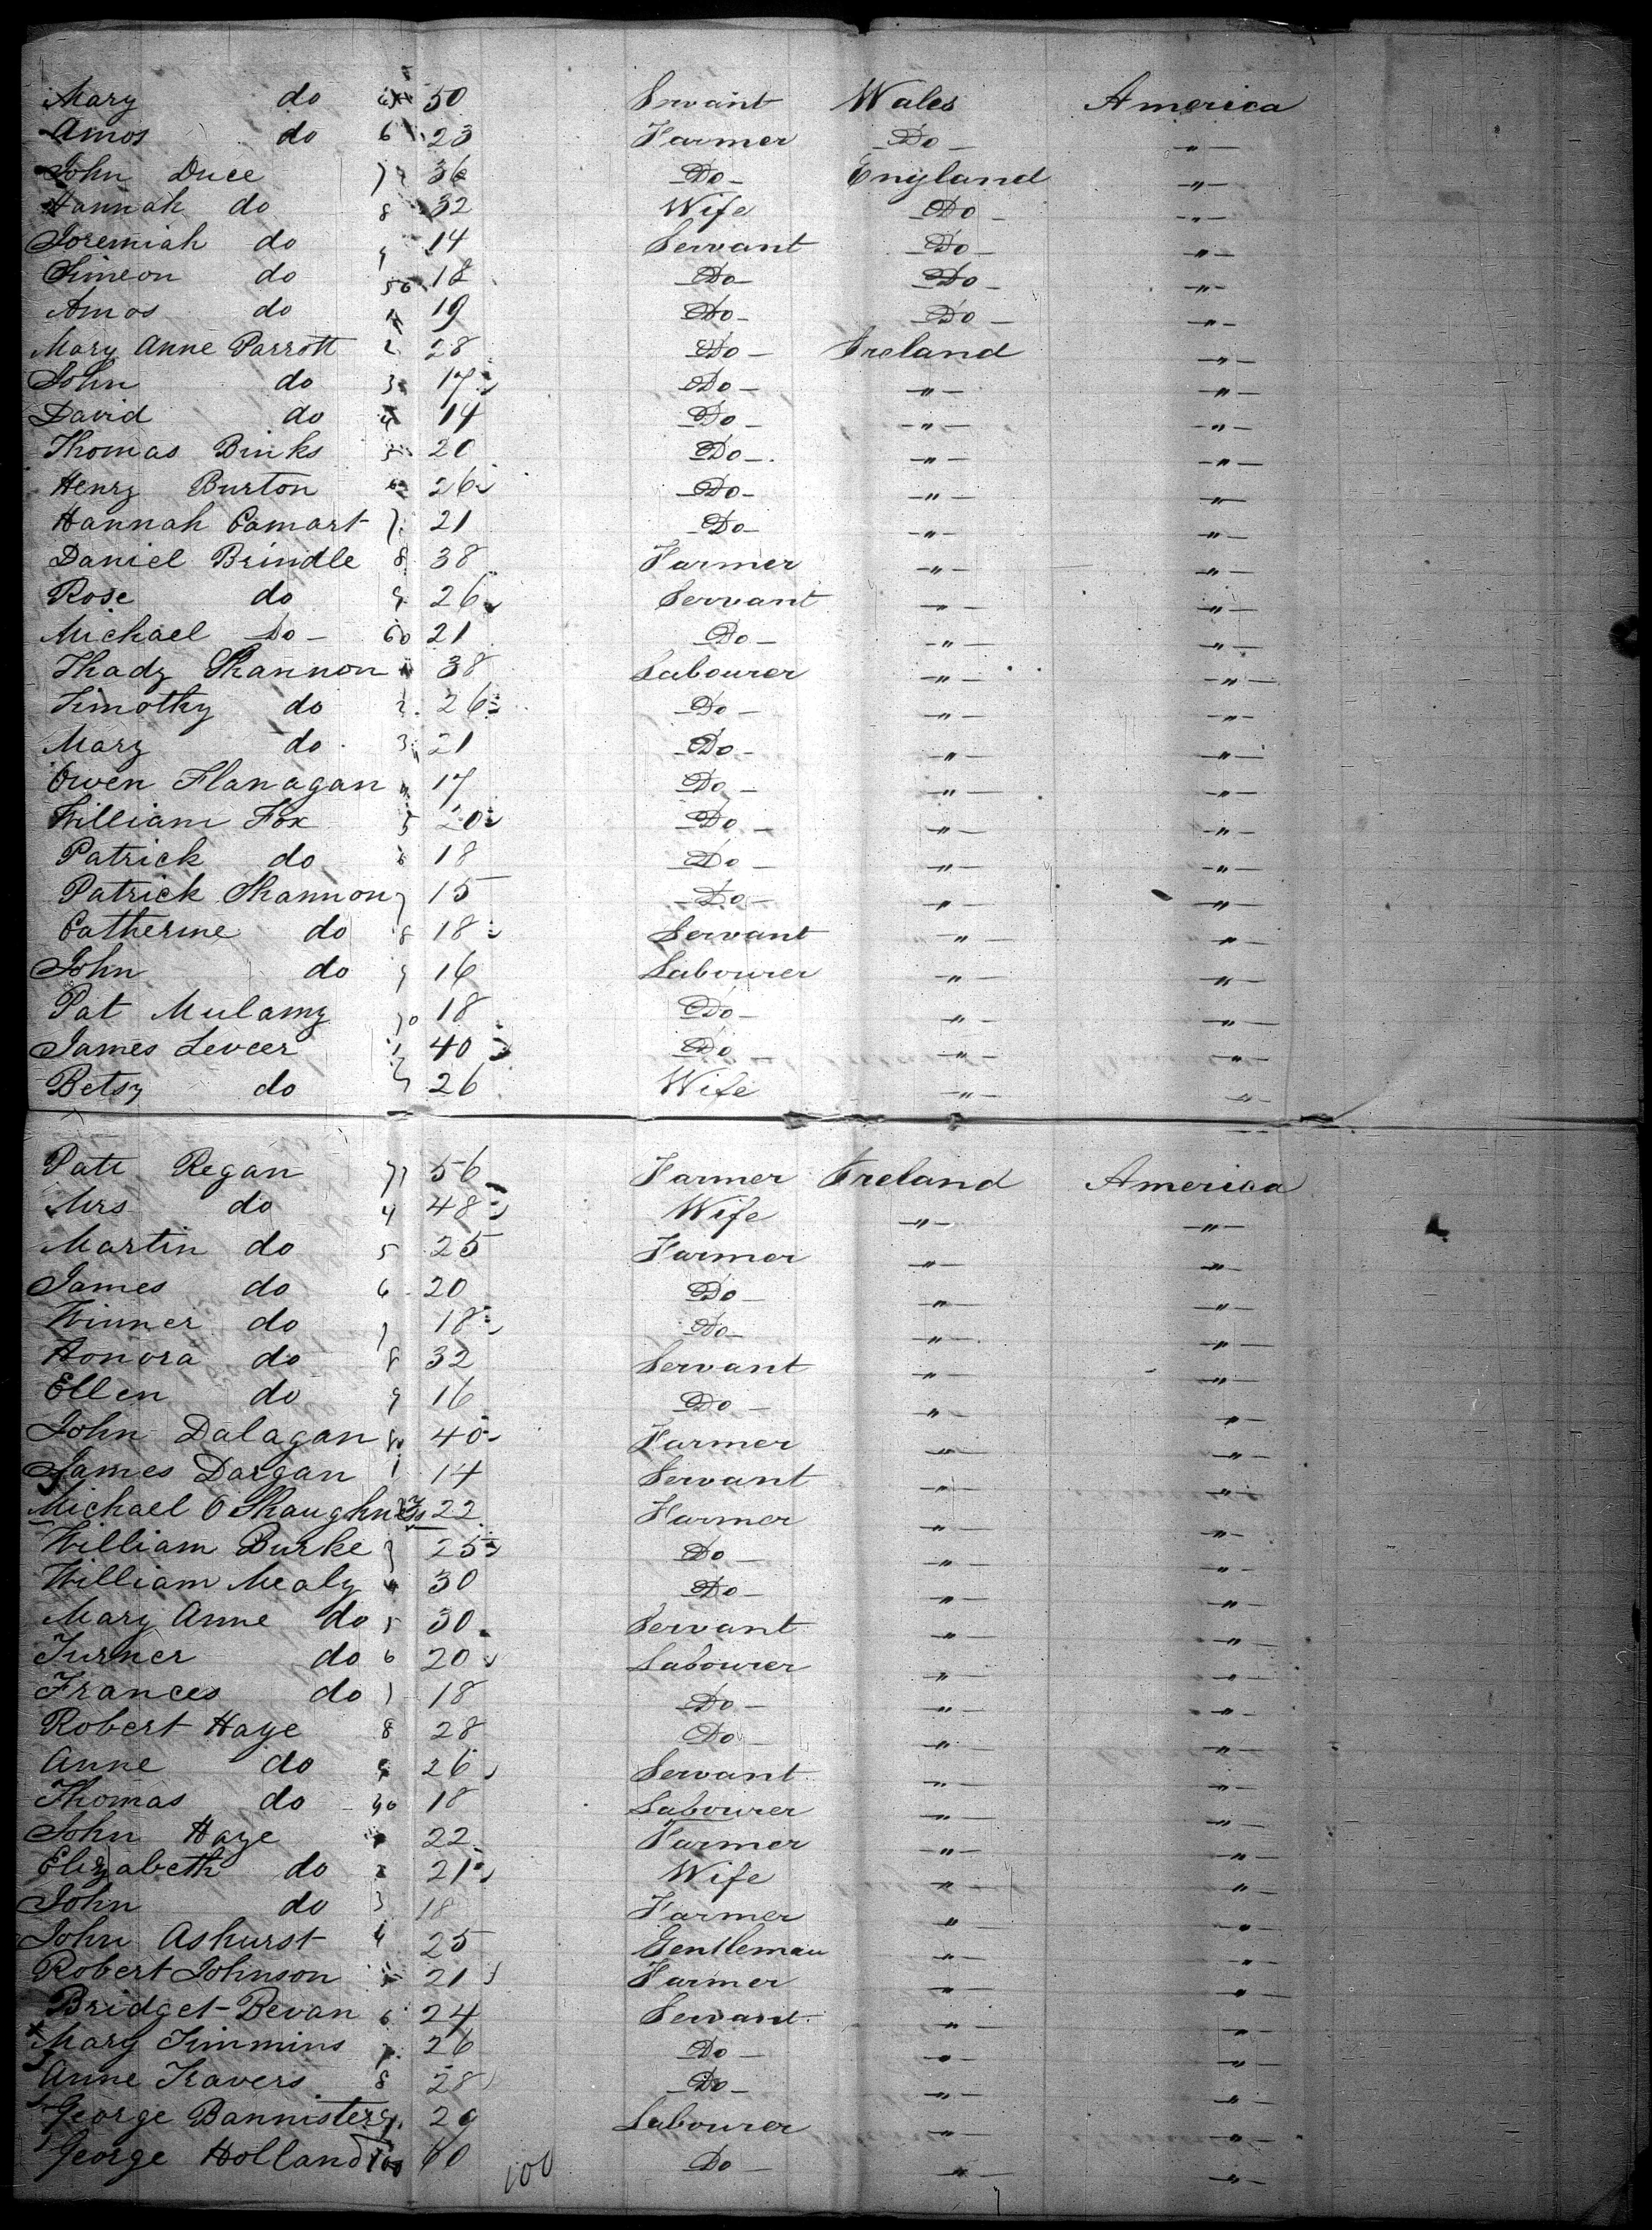 Mary do 50 Servant Wales America
Amos do 6 23 Farmer Do "
John Duce 7 36 Do England "
Hannah do 8 32 Wife Do "
Jeremiah do 9 14 Servant Do "
Simeon do 50 18 Do Do "
Amos do 1 19 Do Do "
Mary Anne Parrott 2 28 Do Ireland "
John do 3 17 Do " "
David do 4 14 Do " "
Thomas Binks 5 20 Do " "
Henry Burton 6 26 Do " "
Hannah Camart 7 21 Do " "
Daniel Brindle 8 38 Farmer " "
Rose do 9 26 Servant " "
Michael Do 60 21 Do " "
Thady Shannon 1 38 Labourer " "
Timothy do 2 26 Do " "
Mary do 3 21 Do " "
Owen Flanagan 4 17 Do " "
William Fox 5 20 Do " "
Patrick do 6 18 Do " "
Patrick Shannon 7 15 Do " "
Catherine do 8 18 Servant " "
John do 9 16 Labourer " "
Pat Mulamy 70 18 Do " "
James Leveer 1 40 Do " "
Betsy do 26 Wife " "
Patt Regan 56 Farmer Ireland America
Mrs do 4 48 Wife " "
Martin do 5 25 Farmer " "
James do 6 20 Do " "
Winner do 7 18 Do " "
Honora do 8 32 Servant " "
Ellen do 9 16 Do " "
John Dalagan 80 40 Farmer " "
James Dargan 1 14 Servant " "
Michael O Shaughnessy 22 Farmer " "
William Burke 3 25 Do " "
William Mealy 4 30 Do " "
Mary Anne do 5 30 Servant " "
Turner do 6 20 Labourer " "
Frances do 7 18 Do " "
Robert Haye 8 28 Do " "
Anne do 9 26 Servant " "
Thomas do 90 18 Labourer " "
John Haye 1 22 Farmer " "
Elizabeth do 2 21 Wife " "
John do 3 18 Farmer " "
John Ashurst 4 25 Gentleman " "
Robert Johnson 5 21 Farmer " "
Bridget Bevan 6 24 Servant " "
Mary Timmins 7 26 Do " "
Anne Travers 8 28 Do " "
George Bannister 9 20 Labourer " "
George Holland 100 60 100 Do " "